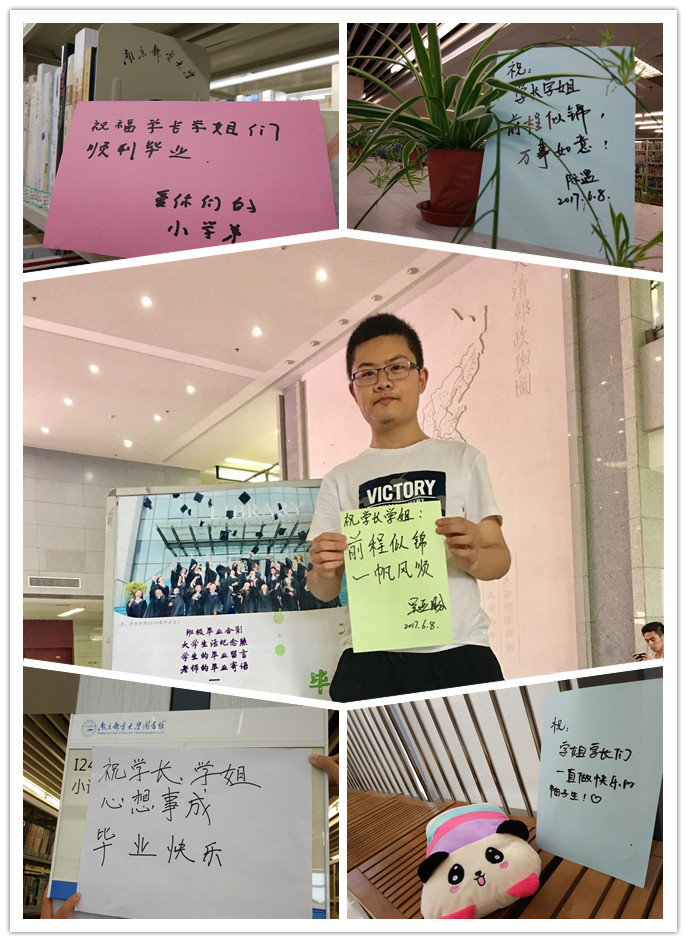 南京邮电大学
祝福学长学姐们
顺利毕业
爱你们的
小学弟
祝：
学长学姐
前程似锦，
万事如意！
陈遇
2017.6.8.
大清邮政舆图
LIBRARY
VICTORY
祝学长学姐：
前程似锦
一帆风顺
2017.6.8.
班级毕业合影
大学生活纪念照
学生的毕业留言
老师的毕业寄语
毕
南京邮电大学图书馆
I24
小说
祝学长学姐
心想事成
毕业快乐
祝：
学姐学长们
一直做快乐的
柚子生！♡